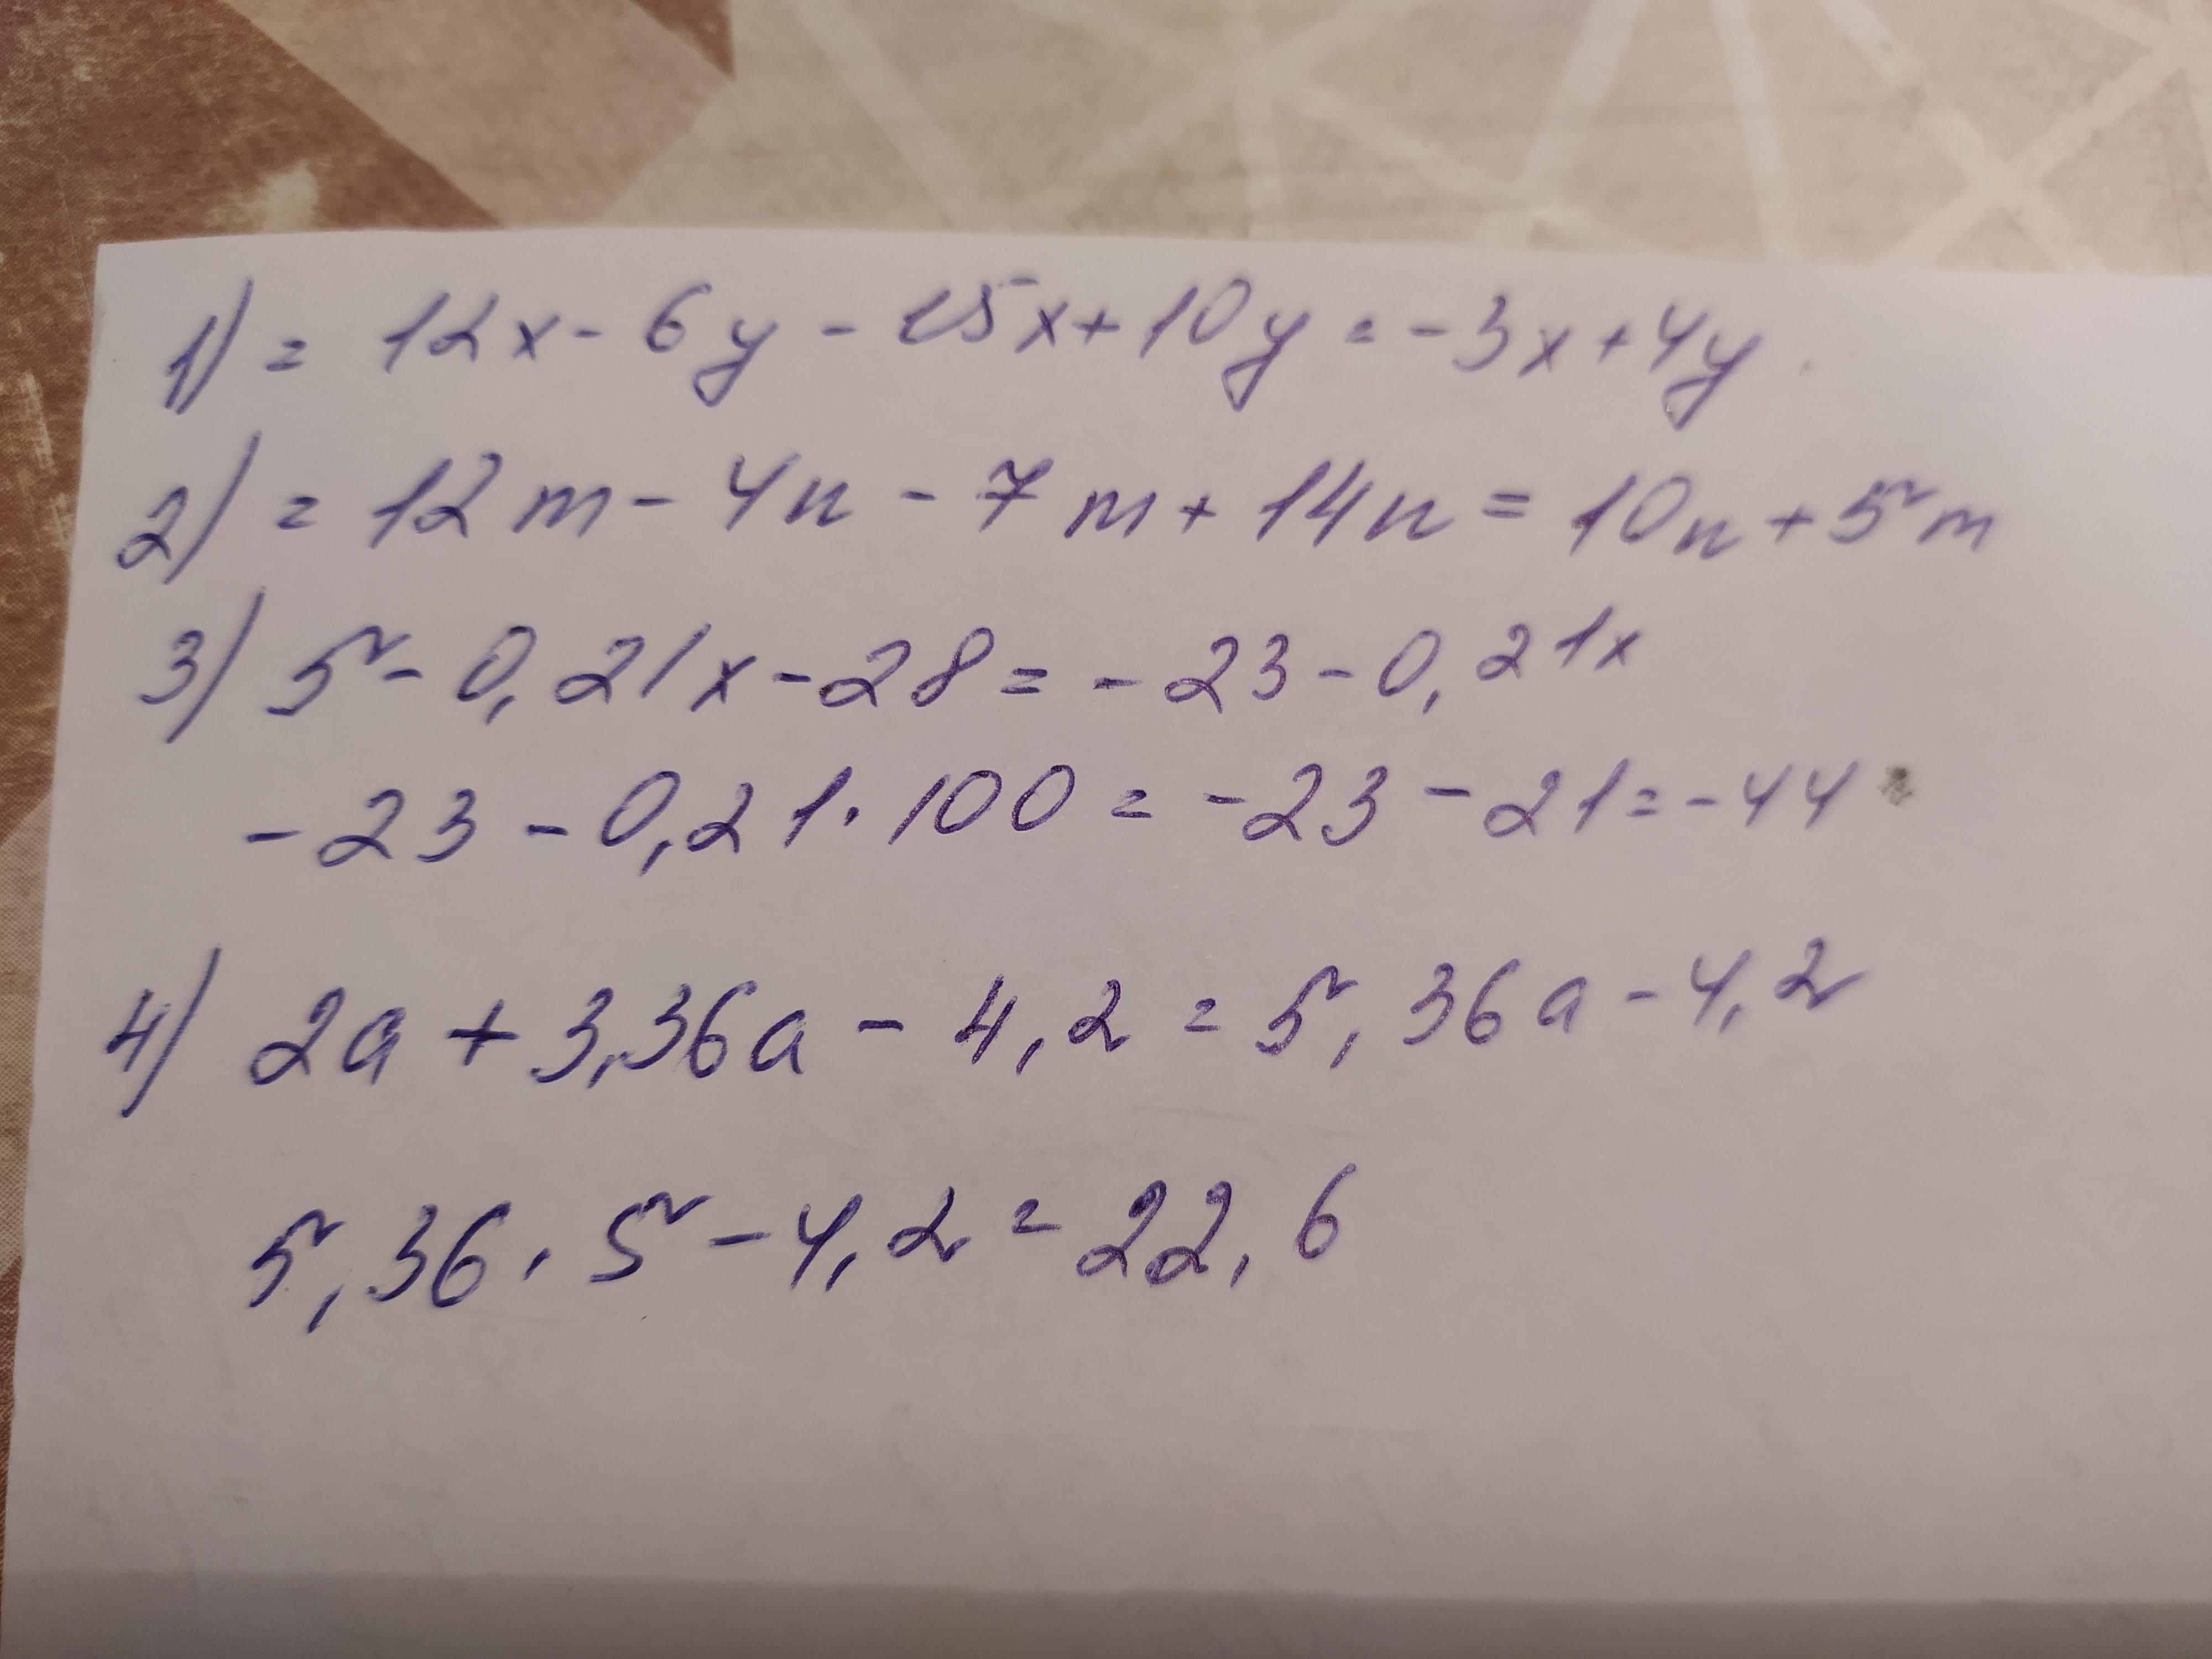 1) = 12x - 6y - 15x + 10y = -3x + 4y.
2) = 12m - 4n - 7m + 14n = 10n + 5m
3) 5 - 0,21x - 28 = -23 - 0,21x
-23 - 0,21 · 100 = -23 - 21 = -44
4) 2a + 3,36a - 4,2 = 5,36a - 4,2
5,36 · 5 - 4,2 = 22,6